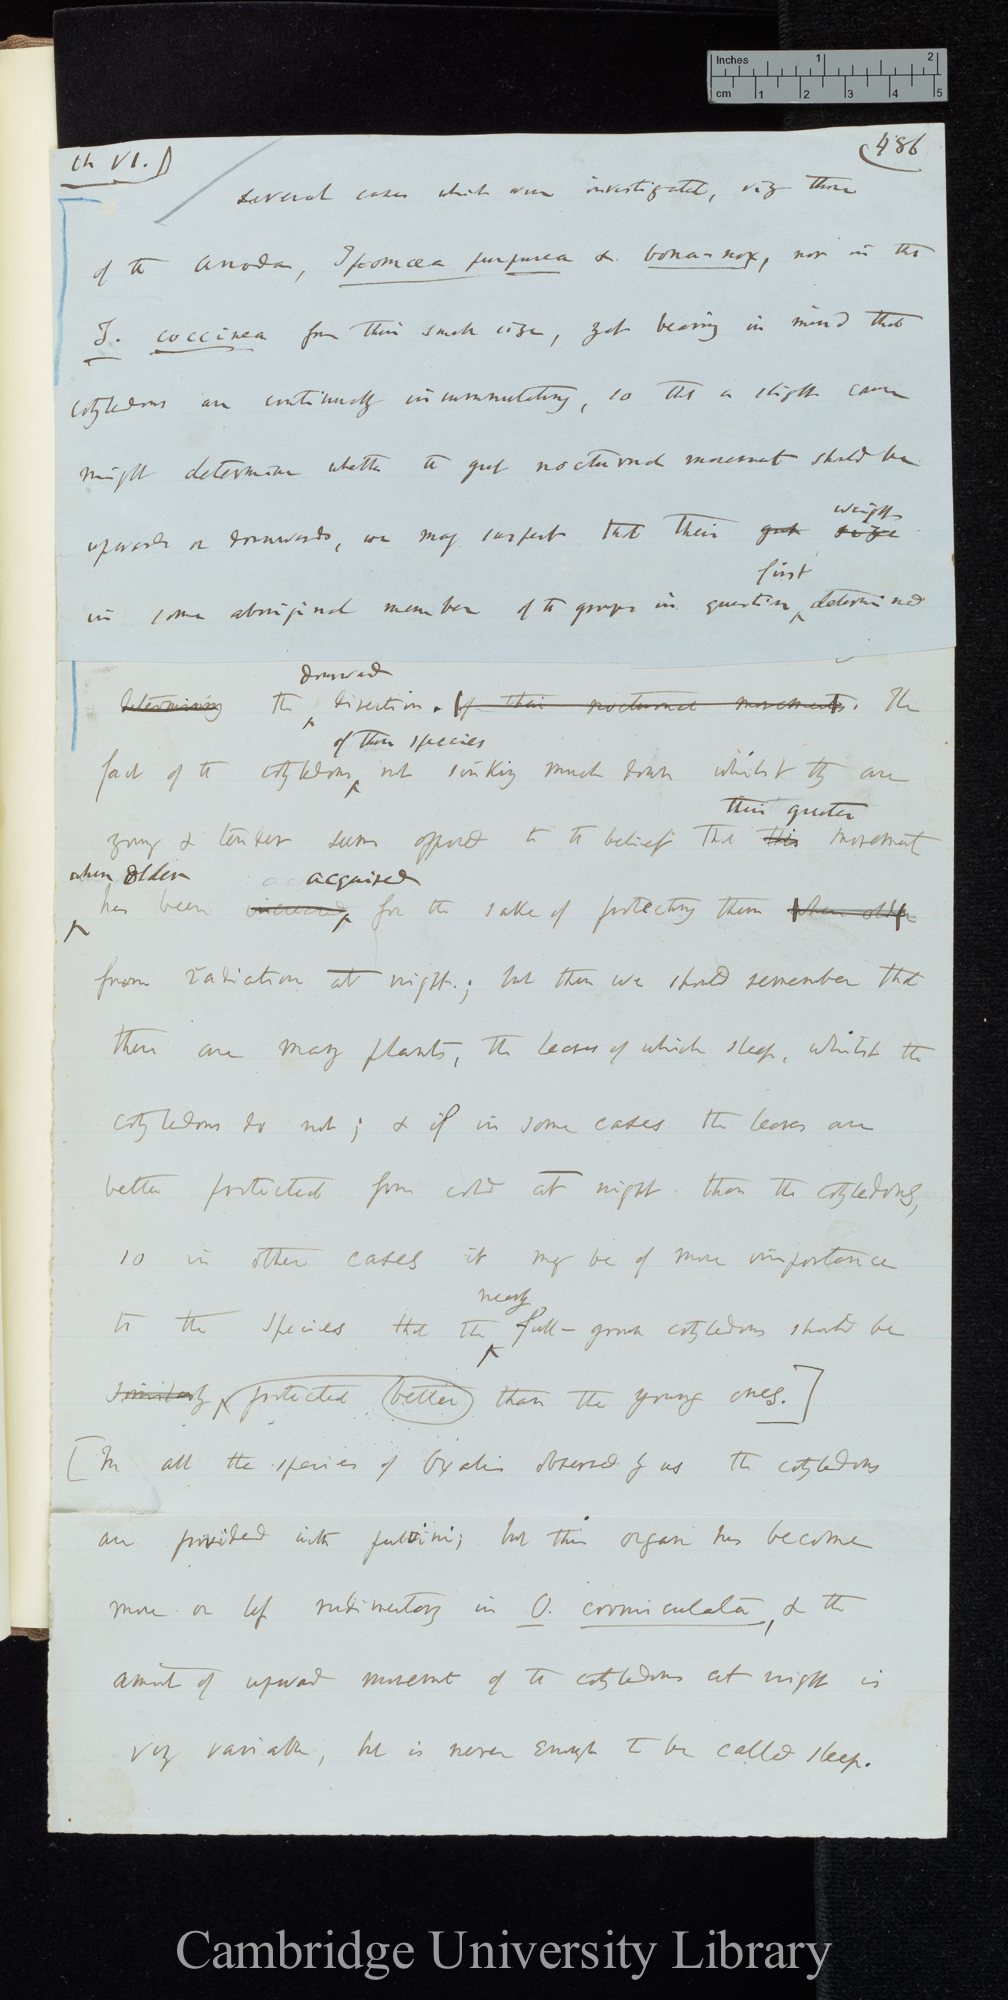 Inches 1 2
cm 1 2 3 4 5
Ch VI.)
(486
several cases which were investigated, viz those
of the Anoda, Ipomœa purpurea & bona-nox, nor in the
I. coccinea from their small size, yet bearing in mind that
cotyledons are continually circumnutating, so that a slight cause
might determine whether the great nocturnal movement should be
weight
upwards or downwards, we may suspect that their great size
first
in some aboriginal member of the groups in question determined
downward
determining the direction. of their nocturnal movements. The
of these species
fact of the cotyledons not sinking much down whilst they are
their greater
young & tender seems opposed to the belief that this movement
when older acquired
has been increased for the sake of protecting them when older
from radiation at night.; but then we should remember that
there are many plants, the leaves of which sleep, whilst the
cotyledons do not; & if in some cases the leaves are
better protected from cold at night than the cotyledons,
so in other cases it may be of more importance
nearly
to the species that the full-grown cotyledons should be
similarly protected better than the young ones.]
[In all the species of Oxalis observed by us the cotyledons
are provided with pulvini; but this organ has become
more or less rudimentary in O. corniculata, & the
amount of upward movement of the cotyledons at night is
very variable, but is never enough to be called sleep.
Cambridge University Library